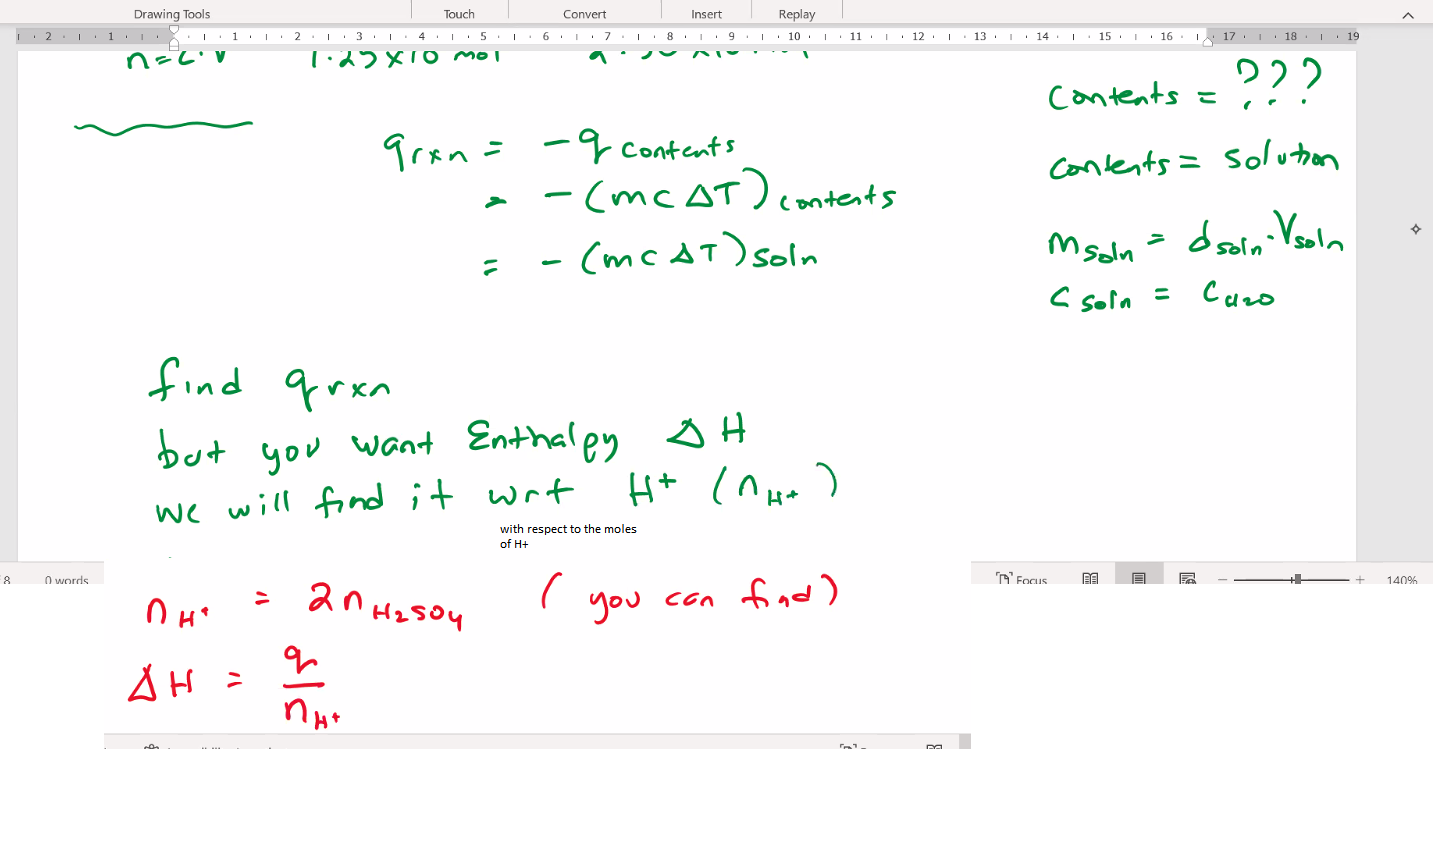 Drawing Tools Touch Convert Insert Replay
2 1 1 2 3 4 5 6 7 8 9 10 11 12 13 14 15 16 17 18 19
n=C·V 1.25x10 mol
contents = ???
qrxn = -q contents
contents = solution
= -(mcΔT) contents
= -(mcΔT) soln
m soln = d soln · V soln
c soln = c H2O
find qrxn
but you want Enthalpy ΔH
we will find it wrt H+ (n H+)
with respect to the moles
of H+
8 0 words Focus 140%
n H+ = 2n H2SO4 (you can find)
ΔH = q
n H+